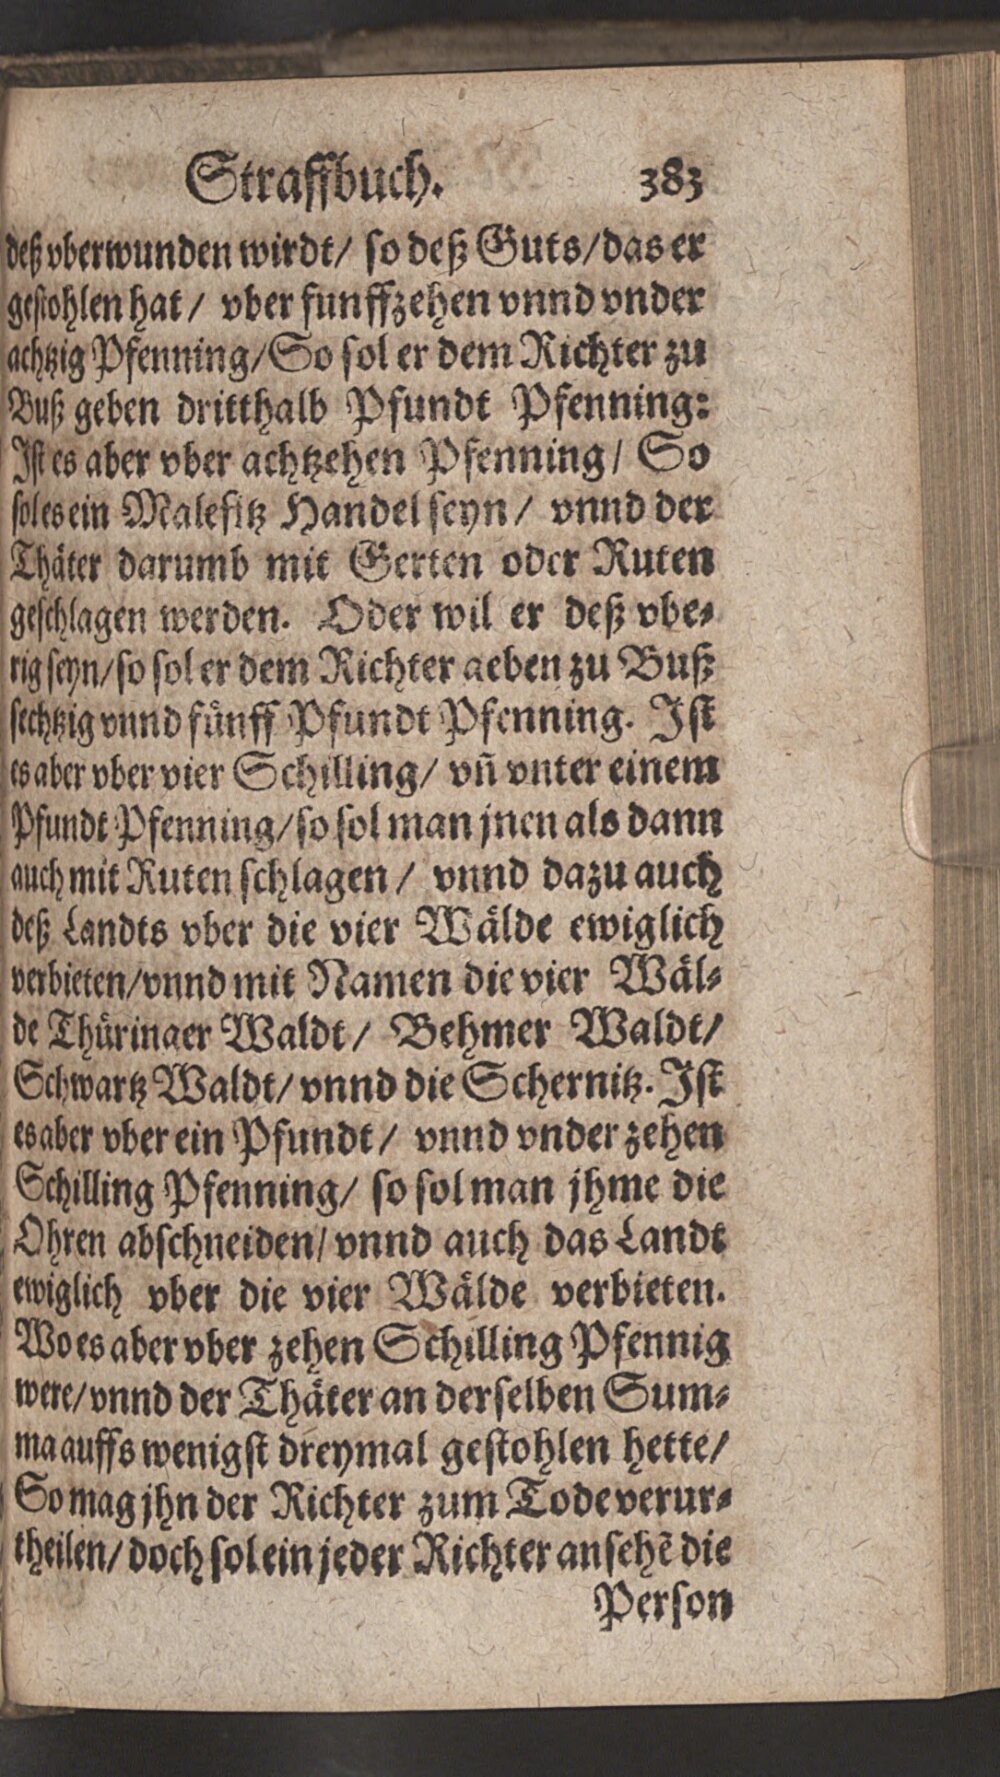 Straffbuch. 383
deß vberwunden wirdt/ so deß Guts/ das er
gestohlen hat/ vber funffzehen vnnd vnder
achtzig Pfenning/ So sol er dem Richter zu
Buß geben dritthalb Pfundt Pfenning:
Ist es aber vber achtzehen Pfenning/ So
sol es ein Malefitz Handel seyn/ vnnd der
Thäter darumb mit Gerten oder Ruten
geschlagen werden. Oder wil er deß vbe-
rig seyn/ so sol er dem Richter geben zu Buß
sechtzig vnnd fünff Pfundt Pfenning. Ist
es aber vber vier Schilling/ vñ vnter einem
Pfundt Pfenning/ so sol man jnen als dann
auch mit Ruten schlagen/ vnnd dazu auch
deß Landts vber die vier Wälde ewiglich
verbieten/ vnnd mit Namen die vier Wäl-
de Thüringer Waldt/ Behmer Waldt/
Schwartz Waldt/ vnnd die Schernitz. Ist
es aber vber ein Pfundt/ vnnd vnder zehen
Schilling Pfenning/ so sol man jhme die
Ohren abschneiden/ vnnd auch das Landt
ewiglich vber die vier Wälde verbieten.
Wo es aber vber zehen Schilling Pfennig
were/ vnnd der Thäter an derselben Sum-
ma auffs wenigst dreymal gestohlen hette/
So mag jhn der Richter zum Tode verur-
theilen/ doch sol ein jeder Richter ansehẽ die
Person